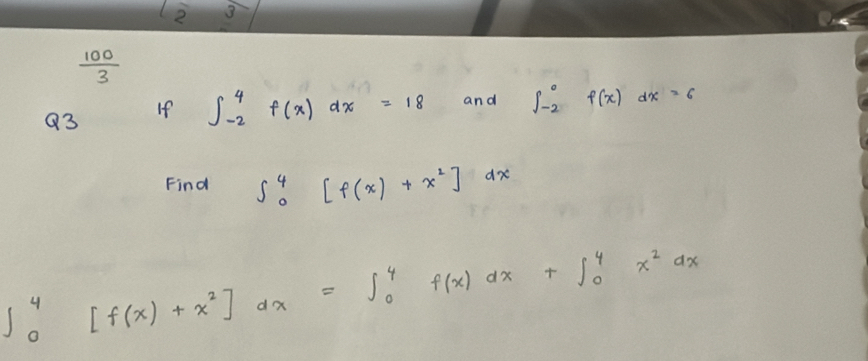 2 3
100/3
Q3 If ∫_{-2}^{4} f(x) dx = 18 and ∫_{-2}^{0} f(x) dx = 6
Find ∫_{0}^{4} [f(x) + x²] dx
∫_{0}^{4} [f(x) + x²] dx = ∫_{0}^{4} f(x) dx + ∫_{0}^{4} x² dx